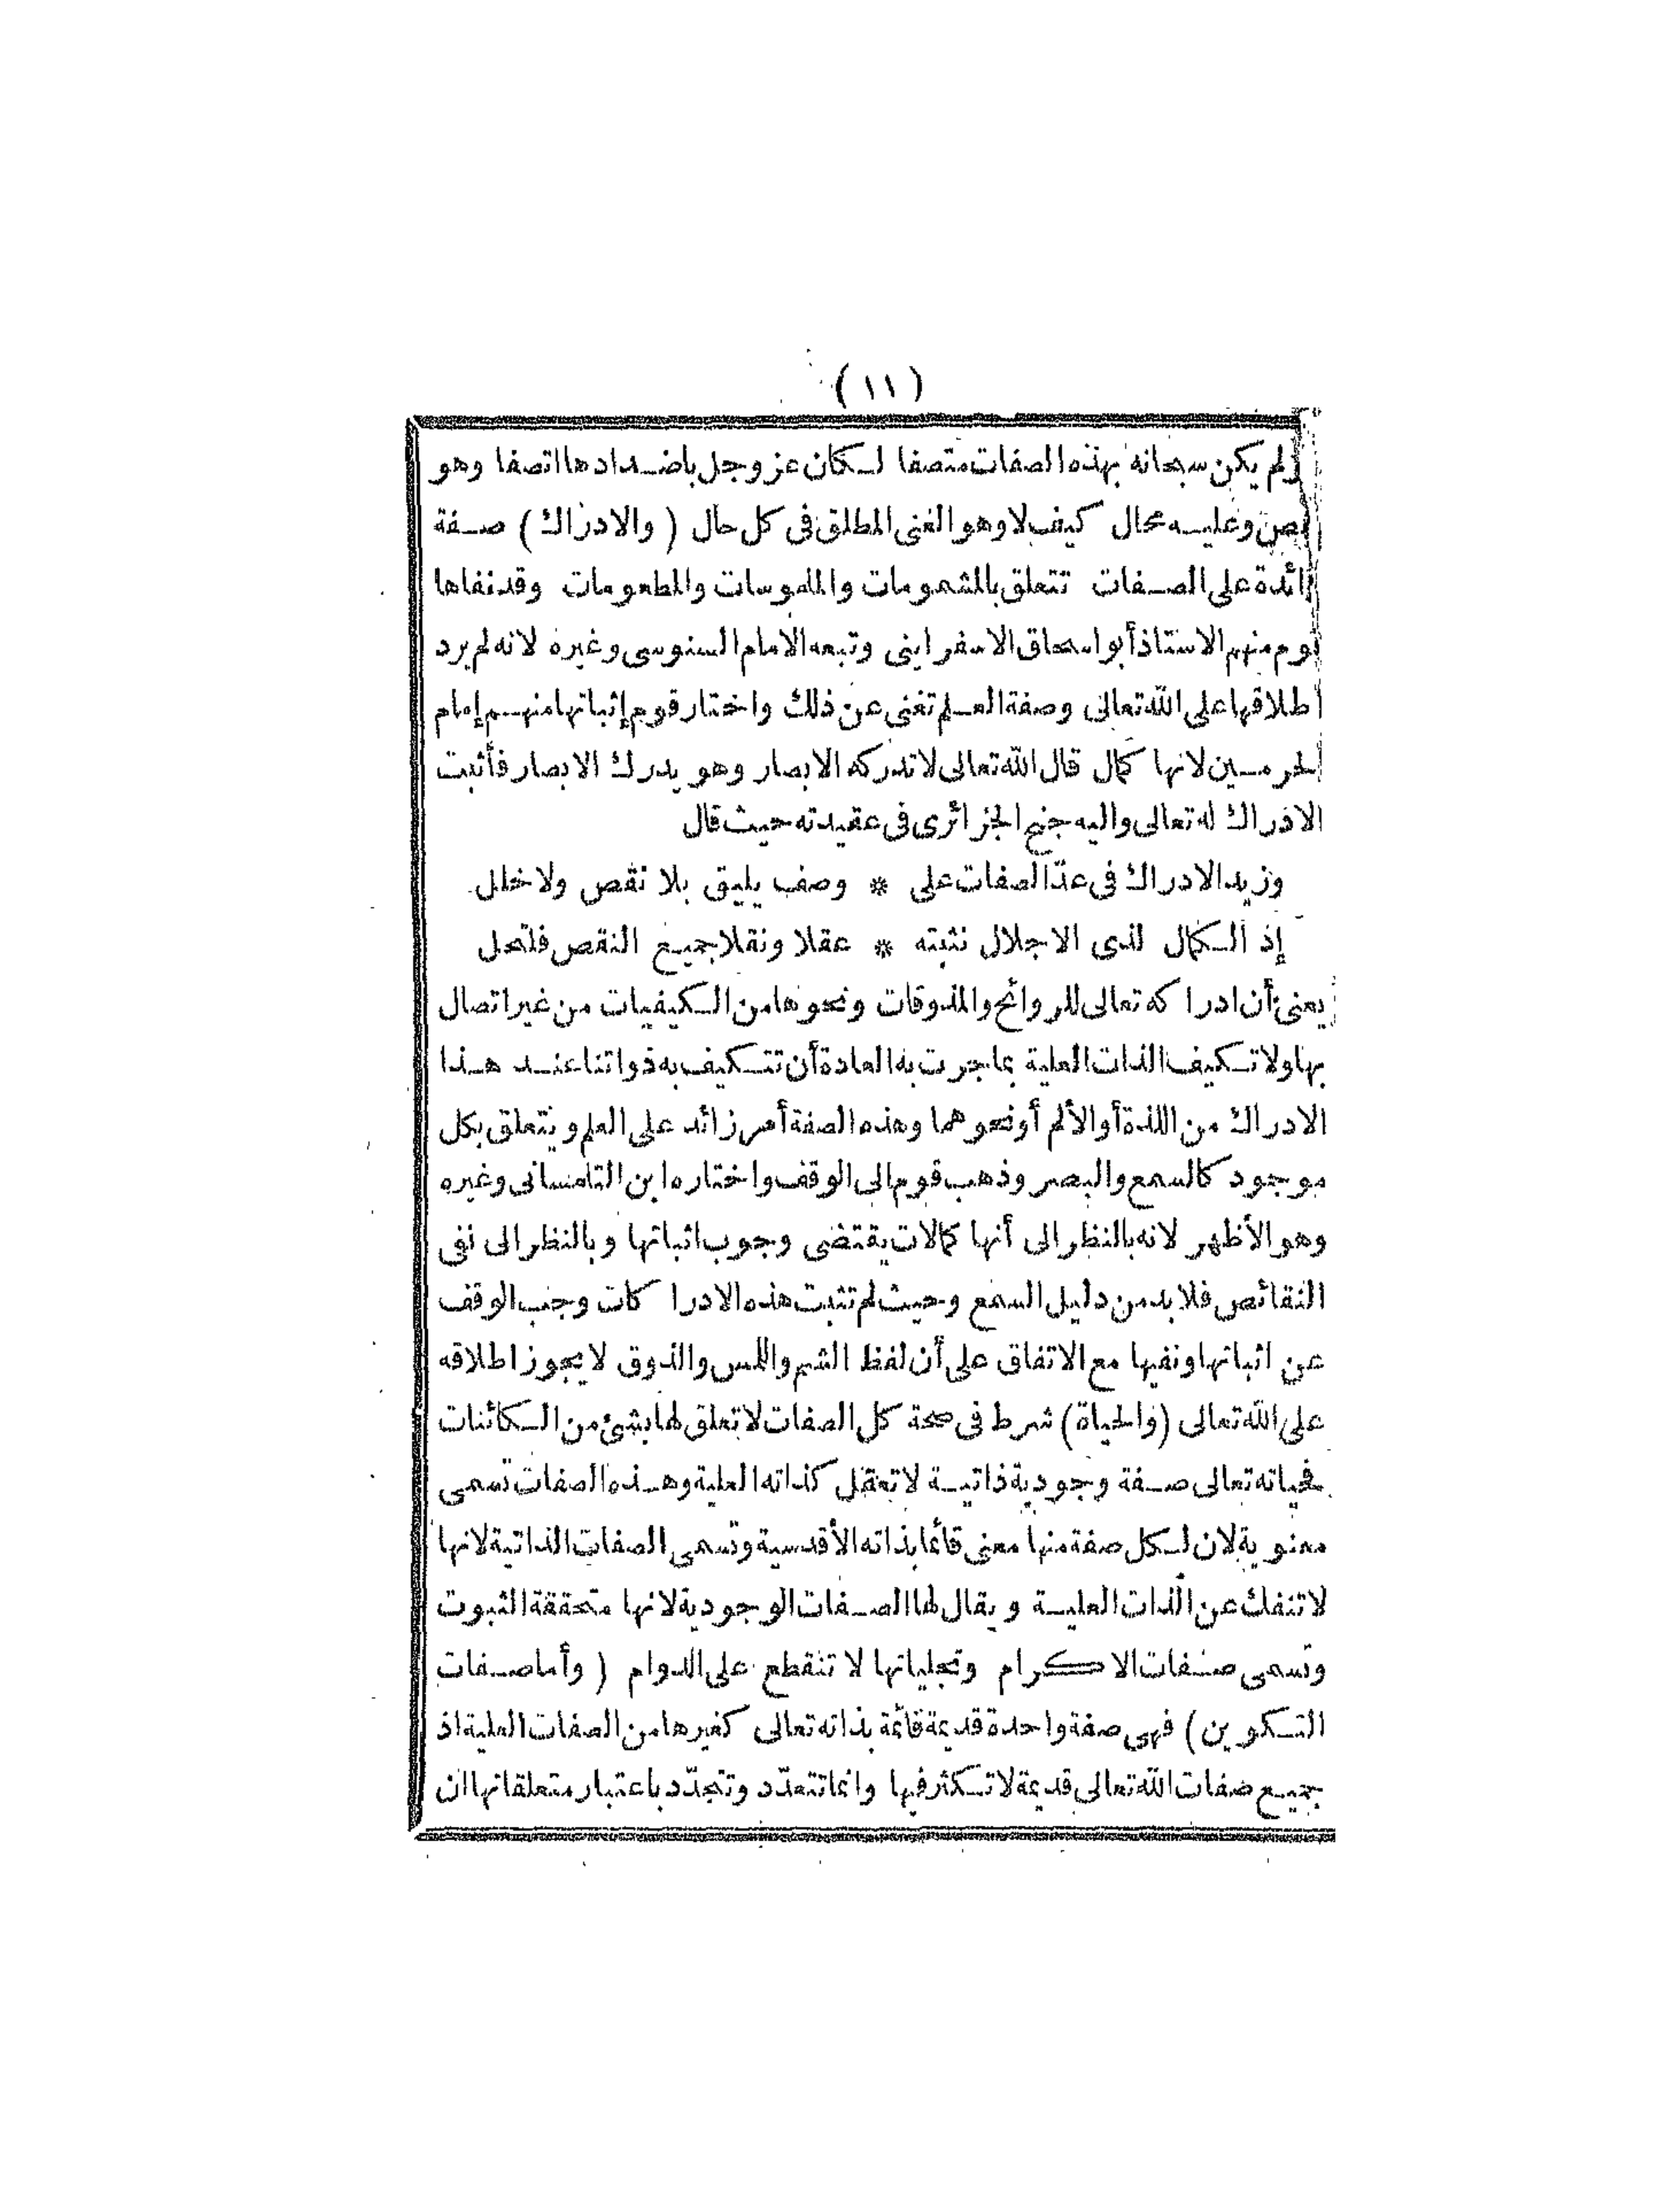 (١١)
لم يكن سبحانه بهذه الصفات متصفا لكان عز وجل باضدادها اتصفا وهو
وعليه محال كيف لا وهو الغنى المطلق فى كل حال (والادراك) صفة
زائدة على الصفات تتعلق بالمشمومات والملموسات والمطعومات وقد نفاها
قوم منهم الاستاذ أبو اسحاق الاسفراينى وتبعه الامام السنوسى وغيره لانه لم يرد
اطلاقها على الله تعالى وصفة العلم تغنى عن ذلك واختار قوم إثباتها منهم إمام
الحرمين لانها كمال قال الله تعالى لا تدركه الابصار وهو يدرك الابصار فأثبت
الادراك له تعالى واليه جنح الجزائرى فى عقيدته حيث قال
وزيد الادراك فى عدّ الصفات على * وصف يليق بلا نقص ولا خلل
إذ الكمال لذى الاجلال نثبته * عقلا ونقلا جميع النقص فلتحل
يعنى أن ادراكه تعالى للروائح والمذوقات ونحوها من الكيفيات من غير اتصال
بها ولا تكيف الذات العلية بما جرت به العادة أن تتكيف به ذواتنا عند هذا
الادراك من اللذة أو الألم أو نحوهما وهذه الصفة أمر زائد على العلم ويتعلق بكل
موجود كالسمع والبصر وذهب قوم الى الوقف واختاره ابن التلمسانى وغيره
وهو الأظهر لانه بالنظر الى أنها كمالات يقتضى وجوب اثباتها وبالنظر الى نفى
النقائص فلابد من دليل السمع وحيث لم تثبت هذه الادراكات وجب الوقف
عن اثباتها ونفيها مع الاتفاق على أن لفظ الشم واللمس والذوق لا يجوز اطلاقه
على الله تعالى (والحياة) شرط فى صحة كل الصفات لا تعلق لها بشئ من الكائنات
فحياته تعالى صفة وجودية ذاتية لا تعقل كذاته العلية وهذه الصفات تسمى
معنوية لان لكل صفة منها معنى قائما بذاته الأقدسية وتسمى الصفات الذاتية لانها
لا تنفك عن الذات العلية ويقال لها الصفات الوجودية لانها متحققة الثبوت
وتسمى صفات الاكرام وتجلياتها لا تنقطع على الدوام (وأما صفات
التكوين) فهى صفة واحدة قديمة قائمة بذاته تعالى كغيرها من الصفات العلية اذ
جميع صفات الله تعالى قديمة لا تكثر فيها وانما تتعدّد وتتجدّد باعتبار متعلقاتها ان